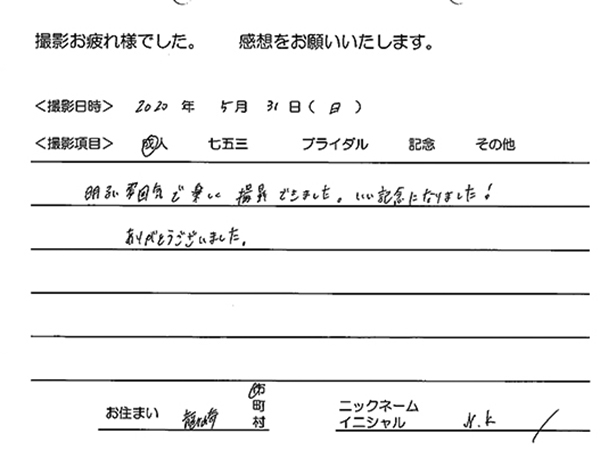 撮影お疲れ様でした。 感想をお願いいたします。
<撮影日時> 2020 年 5月 31日(日)
<撮影項目> 成人 七五三 ブライダル 記念 その他
明るい雰囲気で楽しく撮影できました。いい記念になりました!
ありがとうございました。
お住まい 龍ケ崎 市町村 ニックネーム イニシャル N.K